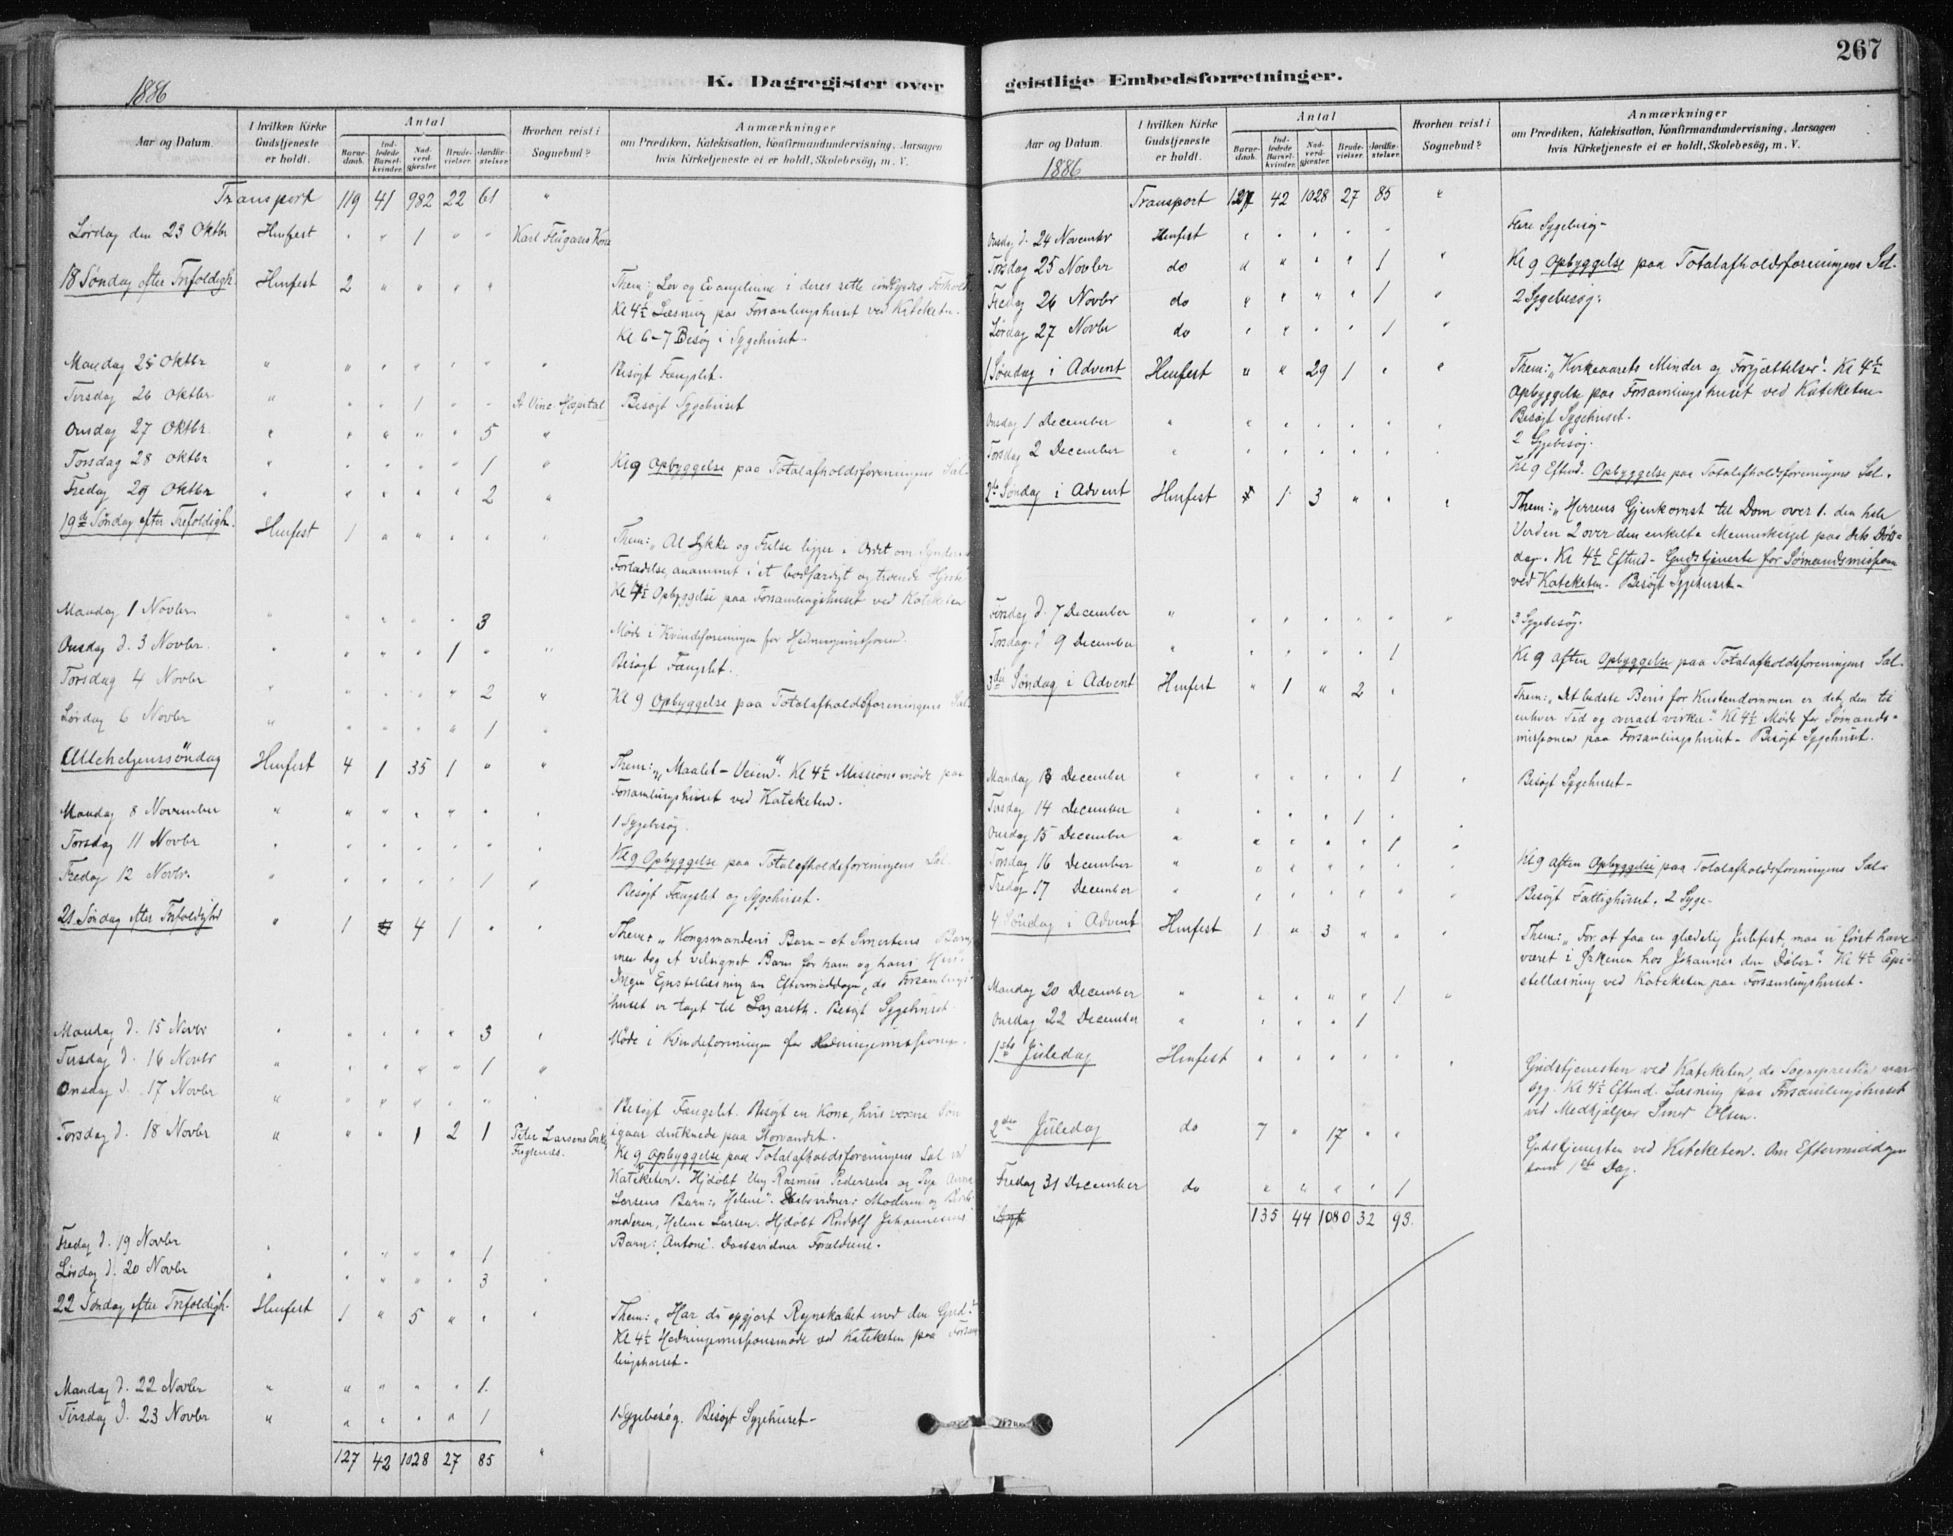 267
K. Dagregister over geistlige Embedsforretninger.
1886
Aar og Datum.
I hvilken Kirke Gudstjeneste er holdt.
Antal
Barnedaab.
Indledede Barselkvinder.
Nadverdgjester.
Brudevielser.
Jordfæstelser.
Hvorhen reist i Sognebud?
Anmærkninger
om Prædiken, Katekisation, Konfirmandundervisning, Aarsagen
hvis Kirketjeneste ei er holdt, Skolebesøg, m. V.
Transport 119 41 982 22 61 "
Lørdag den 23 Oktbr Hmfest " " 1 " " Karl Kona
18 Søndag efter Trifoldigh. Hmfest 2 " " " " Them: „Lov og Evangelium i deres rette
Kl 4½ Læsning paa Forsamlingshuset ved Kateketen.
Kl 6-7 Besøg i Sygehuset.
Mandag 25 Oktbr " " " " " " " Besøgt Fængslet.
Tirsdag 26 Oktbr " " " 1 " " St Vinc. Hospital Besøgt Sygehuset
Onsdag 27 Oktbr " " " " " 5 "
Torsdag 28 Oktbr " " " " " 1 " Kl 9 Opbyggelse paa Totalafholdsforeningens Sal.
Fredag 29 Oktbr " " " " " 2 "
19de Søndag efter Trefoldigh. Hmfest 1 " " " " " Them: „Al Lykke og Frelse ligger i Ordet om Syndernes
Forladelse, anammet i et bodfærdigt og troende Hjerte
Kl 4½ Opbyggelse paa Forsamlingshuset ved Kateketen
Mandag 1 Novbr " " " " " 3
Møde i Kvindeforeningen for Hedningemissionen.
Onsdag d. 3 Novbr. " " " " 1 " " Besøgt Fængslet.
Torsdag 4 Novbr " " " " " 2 " Kl 9 Opbyggelse paa Totalafholdsforeningens Sal.
Lørdag 6 Novbr " " " " " 1 "
Allehelgenssöndag Hmfest 4 1 35 1 " " Them: „Maalet - Veien". Kl 4½ Missionsmøde paa
Forsamlingshuset ved Kateketen.
Mandag 8 November " " " " " " " 1 Sygebesøg.
Torsdag 11 Novbr " " " " " " Kl 9 Opbyggelse paa Totalafholdsforeningens Sal.
Fredag 12 Novbr. " " " " " 1 " Besøgt Fængslet og Sygehuset.
21. Søndag efter Trifoldighed " 1 4 1 " " Them: „Kongsmandens Barn - et Smertens Barn,
men dog et velsignet Barn for ham og hans Hus".
Ingen Epistellæsning om Eftermiddagen, da Forsamlings-
huset er taget til Lazareth. Besøgt Sygehuset.
Mandag d. 15 Novbr " " " " " 3 " Møde i Kvindeforeningen for Hedningemissionen.
Tirsdag d. 16 Novbr " " " " " 1 "
Onsdag d. 17 Novbr " " " " " " " Besøgt Fængslet. Besøgt en Kone, hvis voxne Søn
igaar druknede paa Storvandet.
Torsdag d. 18 Novbr " " " 1 2 1 Peter Larsens Enke, Fuglenæs. Kl 9 Opbyggelse paa Totalafholdsforeningens Sal ved
Kateketen. Hjdøbt Ung Rasmus Pedersens og Pige Anna
Larsens Barn: „Helene". Daabsvidner: Moderen og
moderen, Helene Larsen. Hjdøbt Rudolf Johannesens
Barn: „Antone". Daabsvidner Forældrene.
Fredag d. 19 Novbr " " " " " 1
Lørdag d. 20 Novbr " " " " " 3 "
22 Søndag efter Trifoldigh. Hmfest 1 " 5 " " " Them: „Har du opgjort Regnskabet med din Gud?"
Kl 4½ Hedningemissionsmøde ved Kateketen paa Forsam-
lingshuset.
Mandag d. 22 Novbr " " " " " 1.
Tirsdag d. 23 Novbr " " " " " 1 1 Sygebesøg. Besøgt Sygehuset-
127 42 1028 27 85 "
Aar og Datum.
1886
I hvilken Kirke Gudstjeneste er holdt.
Antal
Barnedaab.
Indledede Barselkvinder.
Nadverdgjester.
Brudevielser.
Jordfæstelser.
Hvorhen reist i Sognebud?
Anmærkninger
om Prædiken, Katekisation, Konfirmandundervisning, Aarsagen
hvis Kirketjeneste ei er holdt, Skolebesøg, m. V.
Transport 127 42 1028 27 85 "
Onsdag d. 24 November Hmfest " " " " " Flere Sygebesøg-
Torsdag 25 Novbr do " " " " 1 " Kl 9 Opbyggelse paa Totalafholdsforeningens Sal.
Fredag 26 Novbr do " " " " 1 " 2 Sygebesøg.
Lørdag 27 Novbr do " " " " 1 "
1 Søndag i Advent Hmfest " " 29 1 " " Them: „Kirkeaarets Minder og Forjættelser". Kl 4½
Opbyggelse paa Forsamlingshuset ved Kateketen-
Besøgt Sygehuset.
Onsdag 1 December " " " " " " 2 Sygebesøg.
Torsdag 2 December " " " " " " Kl 9 Eftmd. Opbyggelse paa Totalafholdsforeningens Sal.
2de Søndag i Advent Hmfest 1 3 " " " Them: „Herrens Gjenkomst til Dom over 1. den hele
Verden 2 over den enkelte Menneskesjel paa dets Døds-
dag. Kl 4½ Eftmd- Gudstjeneste for Sømandsmissionen
ved Kateketen. Besøgt Sygehuset-
Tirsdag d. 7 December " " " " " " " 3 Sygebesøg.
Torsdag d 9 December " " " " " 1 Kl 9 aften Opbyggelse paa Totalafholdsforeningens Sal.
3die Søndag i Advent Hmfest " 1 " 2 " Them: „Det bedste Bevis for Kristendommen er det, den til
enhver Tid og overalt virker". Kl 4½ Møde for Sømands-
missionen paa Forsamlingshuset- Besøgt Sygehuset.
Mandag 13 December " " " " " 1 " Besøgt Sygehuset-
Tirsdag 14 December " " " " 1 "
Onsdag 15 December " " " " " 1 "
Torsdag 16 December " " " " " " " Kl 9 aften Opbyggelse paa Totalafholdsforeningens Sal.
Fredag 17 December " " " " " " " Besøgt Fattighuset. 2 Syge-
4 Søndag i Advent Hmfest 1 " 3 " " " Them: „For at faa en glædelig Julefest, maa vi først have
været i Ørkenen hos Johannes den Døber". Kl 4½ Epi-
stellæsning ved Kateketen paa Forsamlingshuset.
Mandag 20 December " " " " " 1 "
Onsdag 22 December " " " " 1
1ste Juledag Hmfest " " " " " " Gudstjenesten ved Kateketen, da Sognepresten var
syg. Kl 4½ Eftmd. Læsning paa Forsamlingshuset
ved Medhjælper Olsen.
2den Juledag do 7 " 17 " " Gudstjenesten ved Kateketen. Om Eftermiddagen
som 1ste Dag.
Fredag 31 December do " " " " 1
135 44 1080 32 93.